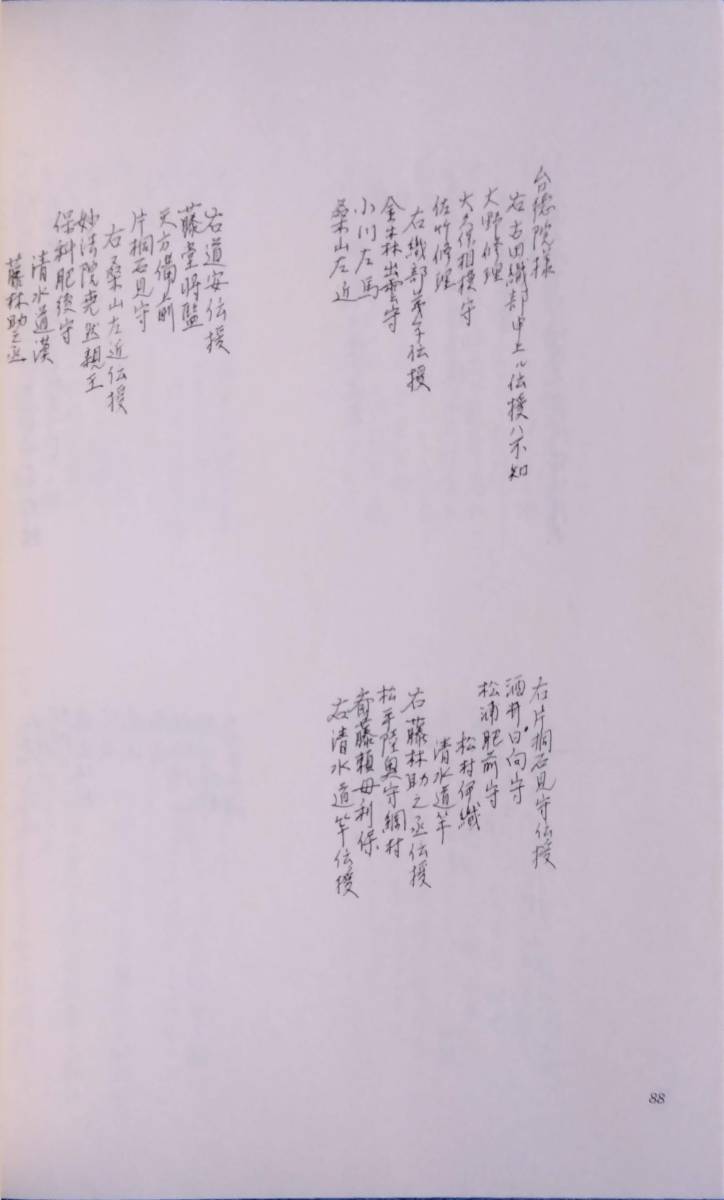 台徳院様
右古田織部申上ル伝授ハ不知
大野修理
大久保相模守
佐竹修理
右織部弟子伝授
金森出雲守
小川左馬
桑山左近
右道安伝授
藤堂将監
天方備前
片桐石見守
右桑山左近伝授
妙法院尭然親王
保科肥後守
清水道漢
藤林助之丞
右片桐石見守伝授
酒井日向守
松浦肥前守
松村伊織
清水道竿
右藤林助之丞伝授
松平陸奥守綱村
斎藤頼母利保
右清水道竿伝授
88